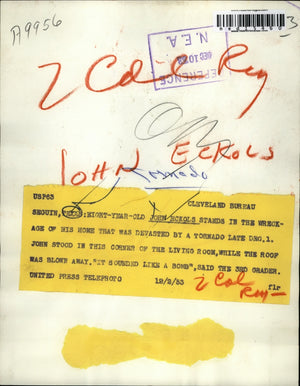 A9956
3
REFERENCE
DEC 10 53
N.E.A.
2 Col
JOHN ECKOLS
Tornado
USP63 CLEVELAND BUREAU
SEGUIN, TEXAS:EIGHT-YEAR-OLD JOHN ECKOLS STANDS IN THE WRECK-
AGE OF HIS HOME THAT WAS DEVASTED BY A TORNADO LATE DEC.1.
JOHN STOOD IN THIS CORNER OF THE LIVING ROOM,WHILE THE ROOF
WAS BLOWN AWAY."IT SOUNDED LIKE A BOMB",SAID THE 3RD GRADER.
UNITED PRESS TELEPHOTO 12/2/53 flr
2 Col